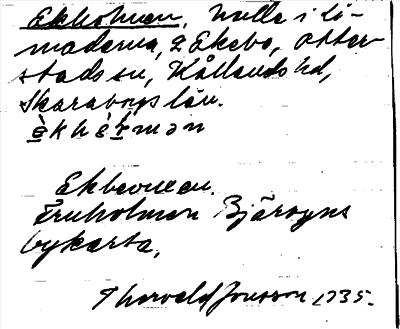 Ekholmen, kulle i Li-
maderna, 2 Ekebo, Otter-
stads sn, Kållands hd,
Skaraborgs län.
èkhèɫmən

Ekbevuxen.
Furuholmen Bjärsgns
bykarta.

Thorvald Jonsson 1735.